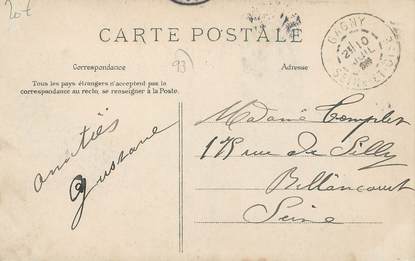 20€
CARTE POSTALE
Correspondance
93
Adresse
Tous les pays étrangers n'acceptent pas la
correspondance au recto, se renseigner à la Poste.
GAGNY
JUIL
SEINE-ET-OISE
amitiés
Gustave
Madame Complet
178 rue de Silly
Billancourt
Seine